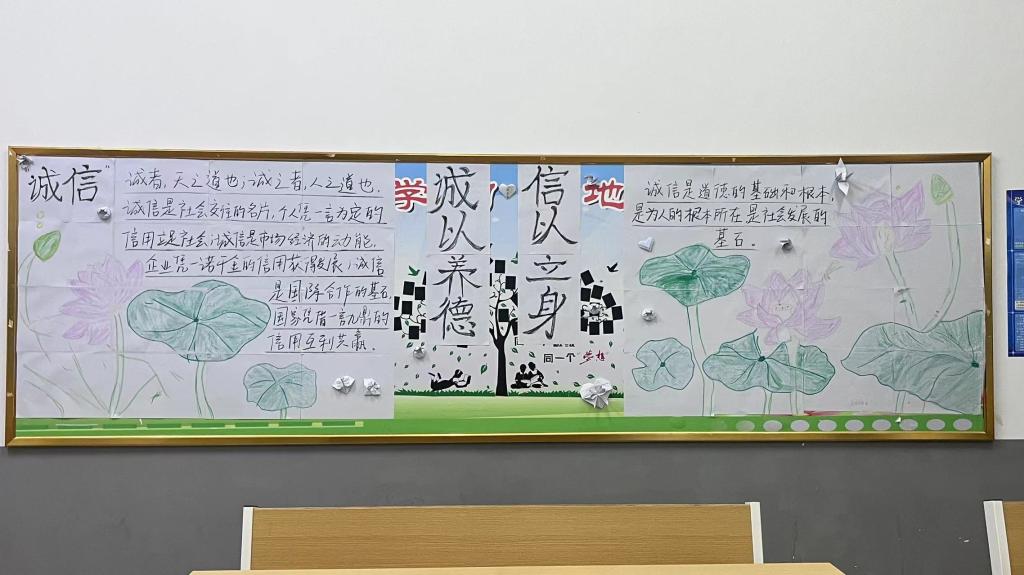 诚信
诚者，天之道也；诚之者，人之道也。
诚信是社会交往的名片，个人凭一言为定的
信用立足社会；诚信是市场经济的动能，
企业凭一诺千金的信用获得发展；诚信
是国际合作的基石，
国家凭借一言九鼎的
信用互利共赢。
学
地
诚以养德
信以立身
同一个 梦想
诚信是道德的基础和根本，
是为人的根本所在是社会发展的
基石。
学